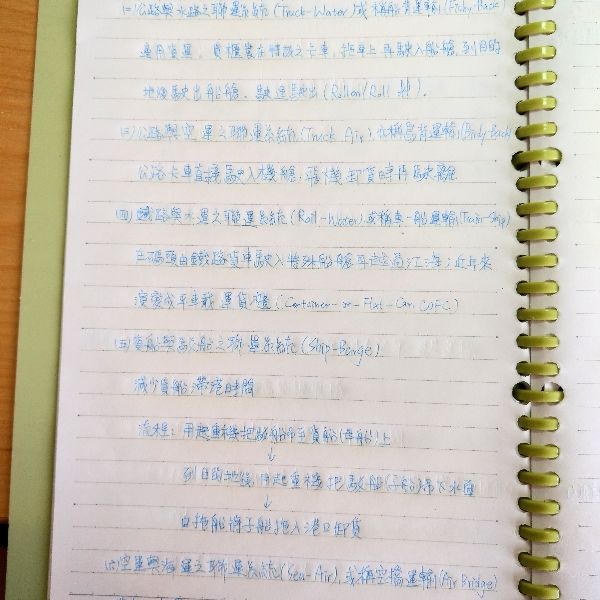 (二)公路與水路之聯運系統(Truck-Water)或稱船背運輸(Fishy-Back
運用貨運、貨櫃裝在特殊之卡車、拖車上再駛入船艙,到目的
地後駛出船艙。駛進駛出(Rollon/Roll
(三)公路與空運之聯運系統(Truck Air)亦稱鳥背運輸(Birdy-Back
公路卡車直接駛入機艙,飛機卸貨時再駛離
(四)鐵路與水運之聯運系統(Rail-Water)或稱車-船運輸(Train-Ship)
在碼頭由鐵路貨車駛入特殊船艙再越過江海;近年來
演變成平車載運貨櫃(Container-on-Flat-Car, COFC)
(五)貨船與駁船之聯運系統(Ship-Barge)
減少貨船滯港時間
流程:用起重機把駁船吊至貨船(母船)上
↓
到目的地後,用起重機把駁船(子船)吊下水面
↓
由拖船將子船拖入港口卸貨
(六)空運與海運之聯運系統(Sea-Air),或稱空橋運輸(Air Bridge)